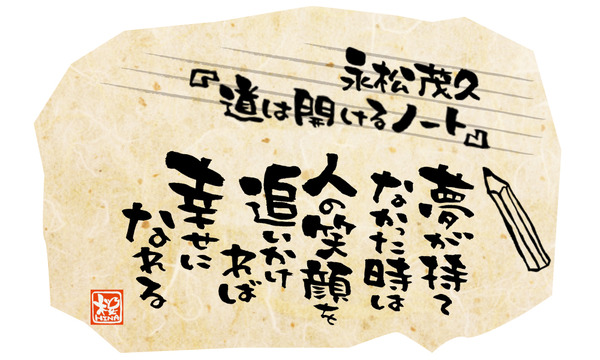 永松茂久
『道は開けるノート』
夢が持て
なかった時は
人の笑顔を
追いかけ
れば
幸せに
なれる
HINA